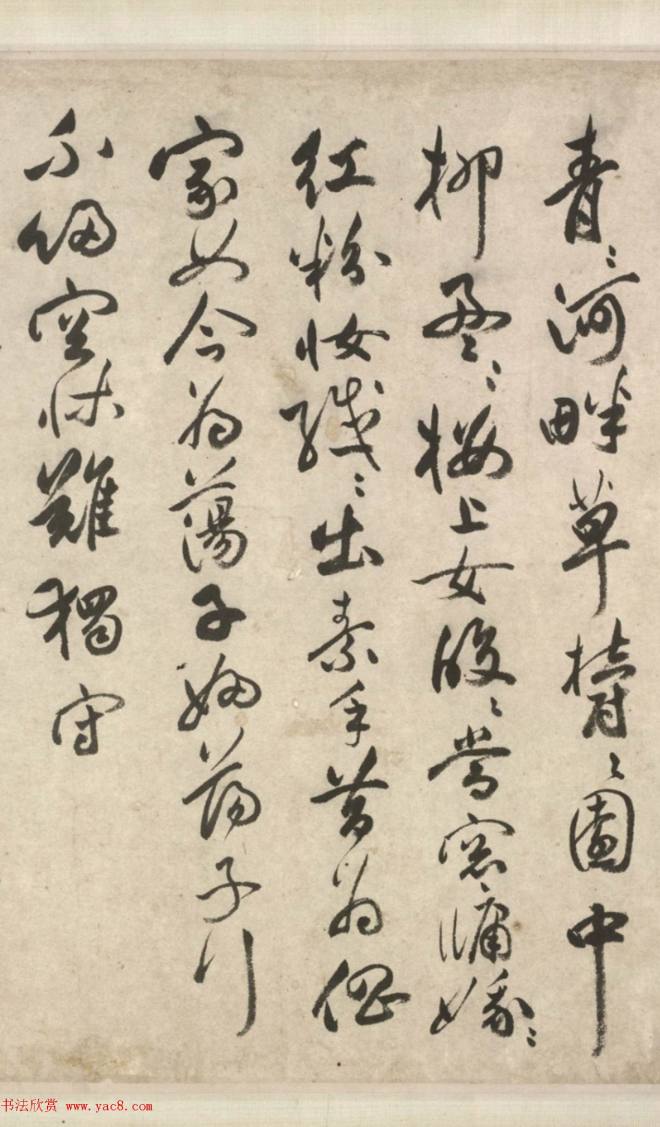 青〻河畔草欝〻園中
柳盈〻樓上女皎〻當窓牖娥〻
紅粉妝纖〻出素手昔為倡
家女今為蕩子婦蕩子行
不歸空牀難獨守
书法欣赏 www.yac8.com